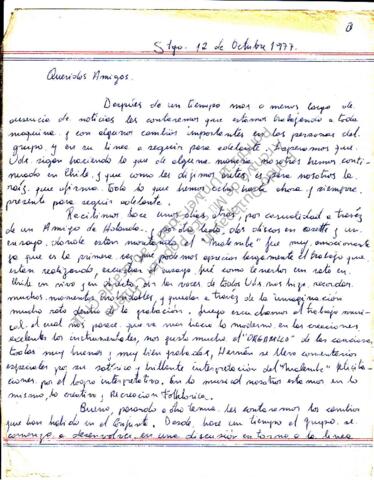 Stgo. 12 de Octubre 1977.
Queridos Amigos.
Después de un tiempo mas o menos largo de
ausencia de noticias les contaremos que estamos trabajando a toda
maquina y con algunos cambios importantes en las personas del
grupo y en su linea a seguir para adelante. Esperamos que
Uds sigan haciendo lo que de alguna manera nosotros hemos conti-
nuado en Chile y que como les dijimos antes es para nosotros la
raíz que afirma todo lo que hemos hecho hasta ahora y siempre
presente para seguir adelante.
Recibimos hace unos dias atrás, por casualidad a través
de un Amigo de Holanda, y por otro lado, dos discos en cassette y un
ensayo, donde estan montando el "Malembe" fue muy emocionante
ya que es la primera vez que podemos apreciar largamente el trabajo que
estan realizando, escuchar el ensayo fué como tenerlos un rato en
Chile en vivo y en directo, oir las voces de todos Uds nos hizo recordar
muchos momentos inolvidables, y quedar a través de la imaginación
mucho rato dentro de la grabación. Luego escuchamos el trabajo musi-
cal, el cual nos parece que va mas hacia lo moderno en las creaciones,
excelentes los instrumentales, nos gusto mucho el "ORGANICO" de las canciones,
todas muy buenas y muy bien grabadas, Hernán se lleva comentarios
especiales por su sobria y brillante interpretación del "Malembe" felicita-
ciones, por el logro interpretativo. En lo musical nosotros estamos en lo
mismo, lo creativo y Recreación Folklórica.
Bueno, pasando a otro tema les contaremos los cambios
que han habido en el Conjunto. Desde hace un tiempo el grupo se
comenzo a desenvolver en una discusión en torno a la linea